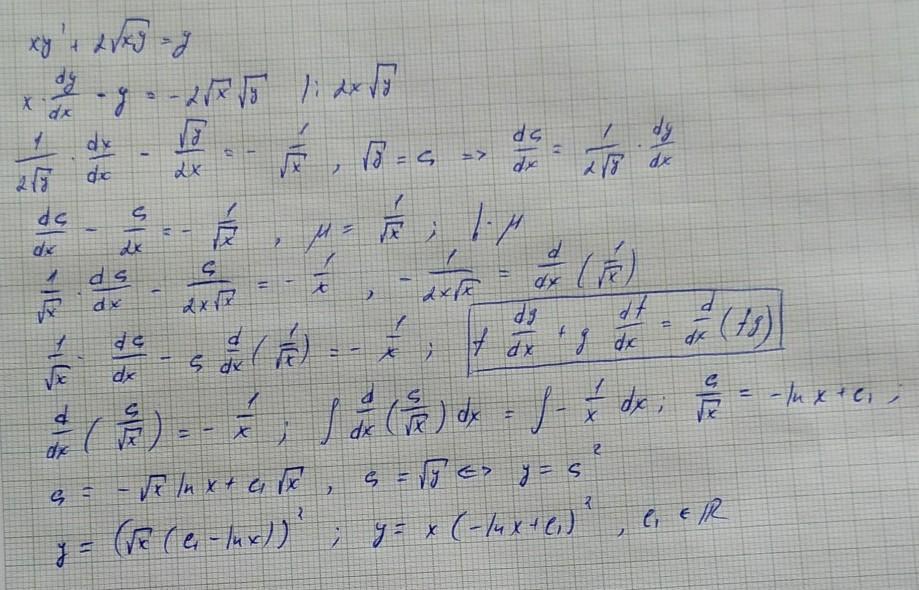 xy' + 2√xy = y
x · dy/dx - y = -2√x √y  /: 2x√y
1/(2√y) · dx/dx - √y/(2x) = - 1/√x , √y = s => ds/dx = 1/(2√y) · dy/dx
ds/dx - s/(2x) = - 1/√x , μ = 1/√x ; /· μ
1/√x · ds/dx - s/(2x√x) = - 1/x , - 1/(2x√x) = d/dx (1/√x)
1/√x · ds/dx - s d/dx (1/√x) = - 1/x ; f dg/dx + g df/dx = d/dx (fg)
d/dx (s/√x) = - 1/x ; ∫ d/dx (s/√x) dx = ∫ - 1/x dx ; s/√x = -ln x + c₁ ;
s = -√x ln x + c₁ √x , s = √y <=> y = s²
y = (√x (c₁ - ln x))² ; y = x (-ln x + c₁)² , c₁ ∈ ℝ